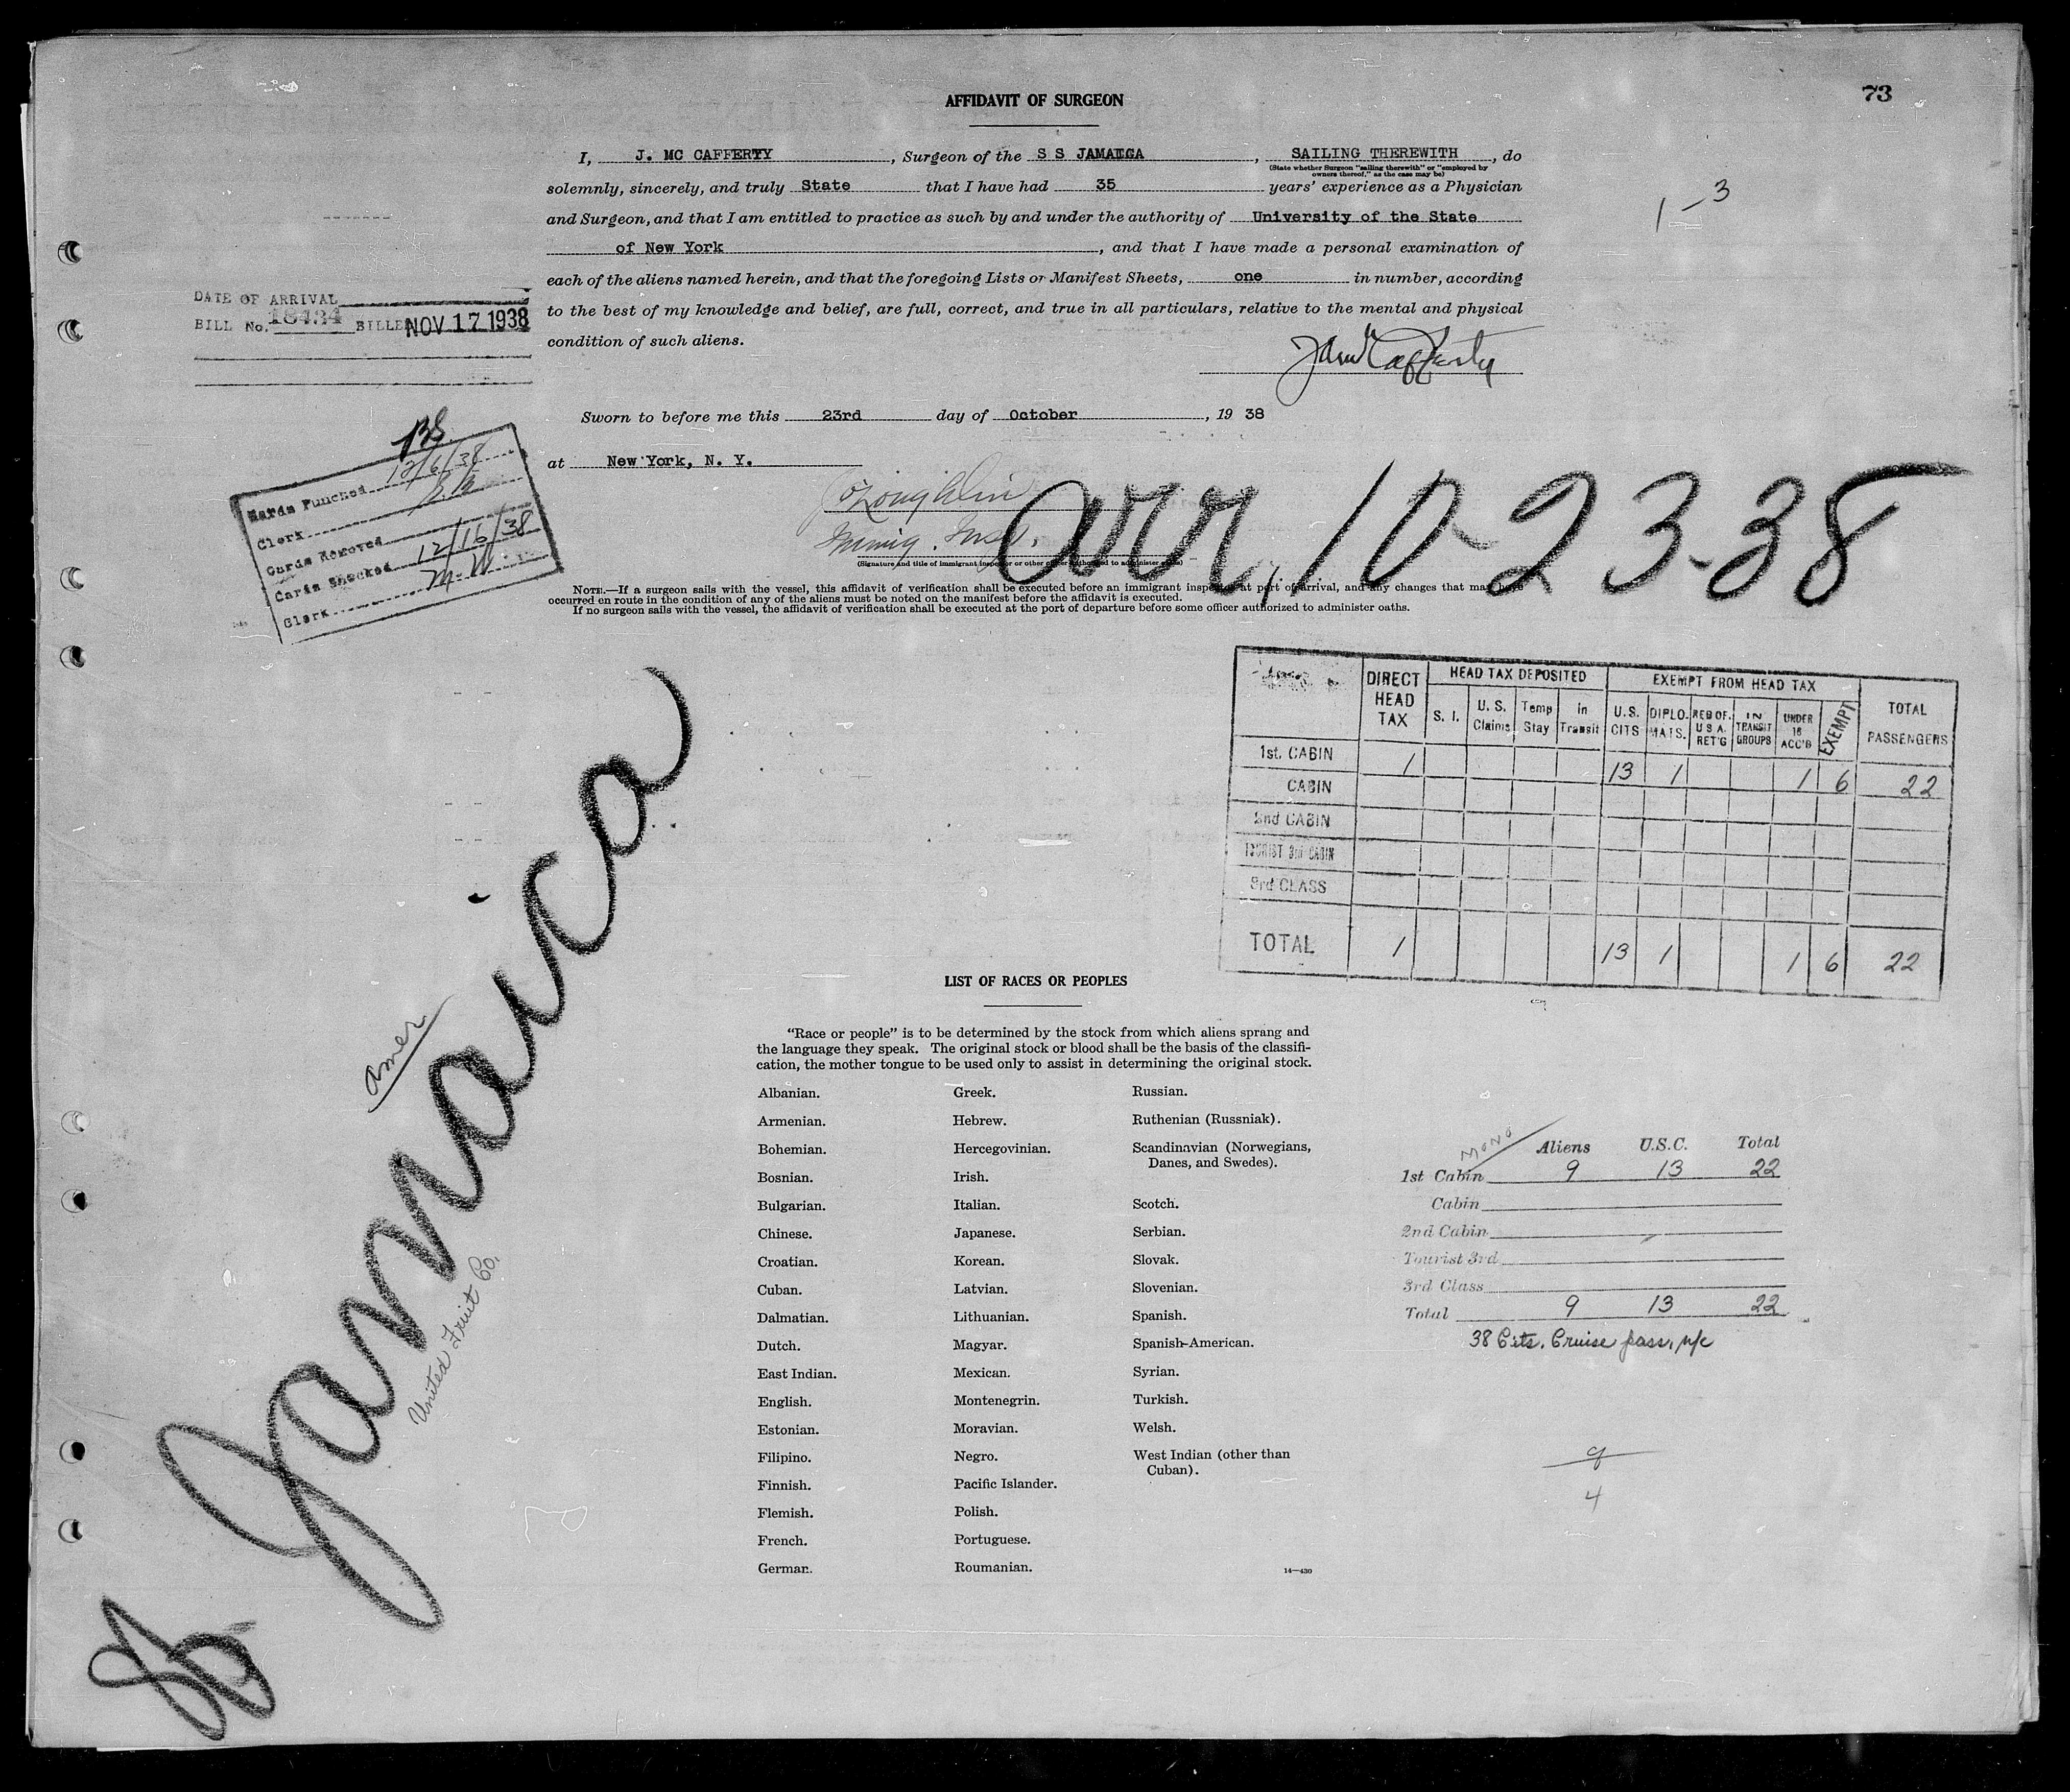 AFFIDAVIT OF SURGEON
73
I, J. MC CAFFERTY, Surgeon of the S S JAMAICA, SAILING THEREWITH, do
(State whether Surgeon "sailing therewith" or "employed by
owners thereof," as the case may be)
solemnly, sincerely, and truly State that I have had 35 years' experience as a Physician
and Surgeon, and that I am entitled to practice as such by and under the authority of University of the State
of New York, and that I have made a personal examination of
each of the aliens named herein, and that the foregoing Lists or Manifest Sheets, one in number, according
to the best of my knowledge and belief, are full, correct, and true in all particulars, relative to the mental and physical
condition of such aliens.
1-3
DATE OF ARRIVAL
BILL No. 18434 BILLED NOV 17 1938
Sworn to before me this 23rd day of October, 19 38
at New York, N. Y.
O'Loughlin
Immig. Insp.
(Signature and title of immigrant inspector or other officer authorized to administer oaths)
arr, 10-23-38
Cards Punched 12/6/38
Clerk
Cards Removed
Cards Checked 12/16/38
Clerk M.W.
NOTE.—If a surgeon sails with the vessel, this affidavit of verification shall be executed before an immigrant inspector at port of arrival, and any changes that may have
occurred on route in the condition of any of the aliens must be noted on the manifest before the affidavit is executed.
If no surgeon sails with the vessel, the affidavit of verification shall be executed at the port of departure before some officer authorized to administer oaths.
DIRECT HEAD TAX HEAD TAX DEPOSITED EXEMPT FROM HEAD TAX TOTAL PASSENGERS
S. I. U. S. Claims Temp Stay In Transit U.S. CITS DIPLO-MATS. RES OF. U S A. RET'G IN TRANSIT GROUPS UNDER 16 ACC'D EXEMPT
1st. CABIN 1 13 1 1 6 22
CABIN
2nd CABIN
TOURIST 3rd CABIN
3rd CLASS
TOTAL 1 13 1 1 6 22
SS Jamaica
amer
United Fruit Co.
LIST OF RACES OR PEOPLES
"Race or people" is to be determined by the stock from which aliens sprang and
the language they speak. The original stock or blood shall be the basis of the classifi-
cation, the mother tongue to be used only to assist in determining the original stock.
Albanian. Greek. Russian.
Armenian. Hebrew. Ruthenian (Russniak).
Bohemian. Hercegovinian. Scandinavian (Norwegians,
Danes, and Swedes).
Bosnian. Irish.
Bulgarian. Italian. Scotch.
Chinese. Japanese. Serbian.
Croatian. Korean. Slovak.
Cuban. Latvian. Slovenian.
Dalmatian. Lithuanian. Spanish.
Dutch. Magyar. Spanish-American.
East Indian. Mexican. Syrian.
English. Montenegrin. Turkish.
Estonian. Moravian. Welsh.
Filipino. Negro. West Indian (other than
Cuban).
Finnish. Pacific Islander.
Flemish. Polish.
French. Portuguese.
German. Roumanian.
14—430
MONO
Aliens U.S.C. Total
1st Cabin 9 13 22
Cabin
2nd Cabin
Tourist 3rd
3rd Class
Total 9 13 22
38 Cits. Cruise pass, n/c
9
4